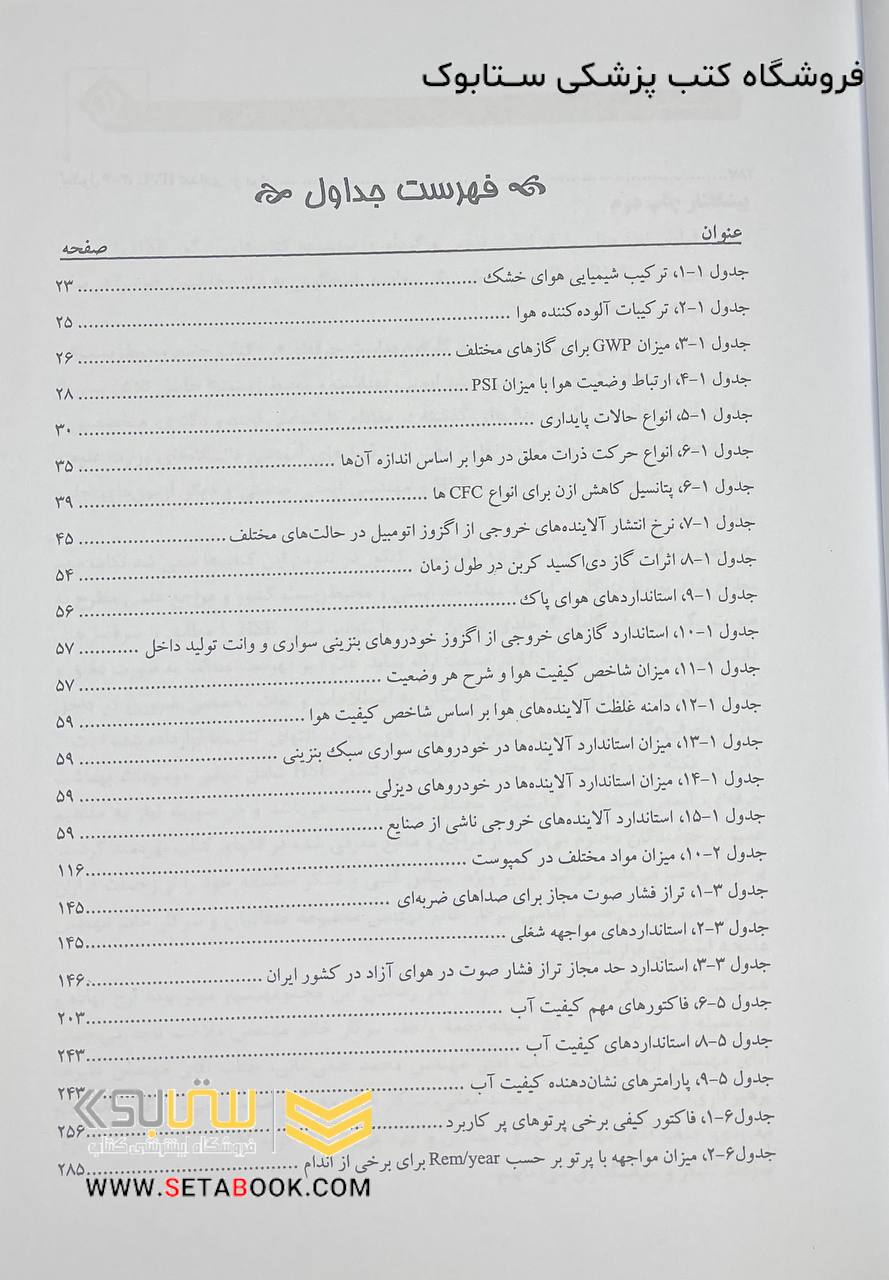 فروشگاه کتب پزشکی ستابوک
فهرست جداول
عنوان
صفحه
جدول ۱-۱، ترکیب شیمیایی هوای خشک ........ ۲۳
جدول ۱-۲، ترکیبات آلوده‌کننده هوا ........ ۲۵
جدول ۱-۳، میزان GWP برای گازهای مختلف ........ ۲۶
جدول ۱-۴، ارتباط وضعیت هوا با میزان PSI ........ ۲۸
جدول ۱-۵، انواع حالات پایداری ........ ۳۰
جدول ۱-۶، انواع حرکت ذرات معلق در هوا بر اساس اندازه آن‌ها ........ ۳۵
جدول ۱-۶، پتانسیل کاهش ازن برای انواع CFC ها ........ ۳۹
جدول ۱-۷، نرخ انتشار آلاینده‌های خروجی از اگزوز اتومبیل در حالت‌های مختلف ........ ۴۵
جدول ۱-۸، اثرات گاز دی‌اکسید کربن در طول زمان ........ ۵۴
جدول ۱-۹، استانداردهای هوای پاک ........ ۵۶
جدول ۱-۱۰، استاندارد گازهای خروجی از اگزوز خودروهای بنزینی سواری و وانت تولید داخل ........ ۵۷
جدول ۱-۱۱، میزان شاخص کیفیت هوا و شرح هر وضعیت ........ ۵۷
جدول ۱-۱۲، دامنه غلظت آلاینده‌های هوا بر اساس شاخص کیفیت هوا ........ ۵۹
جدول ۱-۱۳، میزان استاندارد آلاینده‌ها در خودروهای سواری سبک بنزینی ........ ۵۹
جدول ۱-۱۴، میزان استاندارد آلاینده‌ها در خودروهای دیزلی ........ ۵۹
جدول ۱-۱۵، استاندارد آلاینده‌های خروجی ناشی از صنایع ........ ۵۹
جدول ۲-۱۰، میزان مواد مختلف در کمپوست ........ ۱۱۶
جدول ۳-۱، تراز فشار صوت مجاز برای صداهای ضربه‌ای ........ ۱۴۵
جدول ۳-۲، استانداردهای مواجهه شغلی ........ ۱۴۵
جدول ۳-۳، استاندارد حد مجاز تراز فشار صوت در هوای آزاد در کشور ایران ........ ۱۴۶
جدول ۵-۶، فاکتورهای مهم کیفیت آب ........ ۲۰۳
جدول ۵-۸، استانداردهای کیفیت آب ........ ۲۴۳
جدول ۵-۹، پارامترهای نشان‌دهنده کیفیت آب ........ ۲۴۳
جدول۶-۱، فاکتور کیفی برخی پرتوهای پر کاربرد ........ ۲۵۶
جدول۶-۲، میزان مواجهه با پرتو بر حسب Rem/year برای برخی از اندام ........ ۲۸۵
ستابوک
فروشگاه اینترنتی کتاب
WWW.SETABOOK.COM